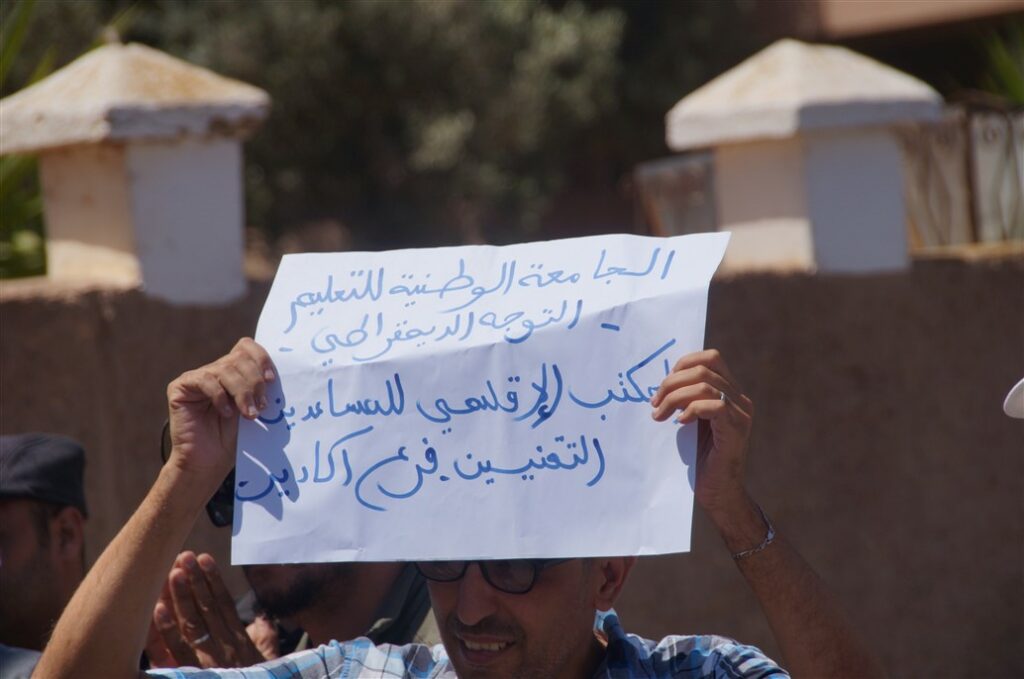 الجامعة الوطنية للتعليم
- التوجه الديمقراطي -
المكتب الإقليمي للمساعدين
التقنيين فرع اكادير